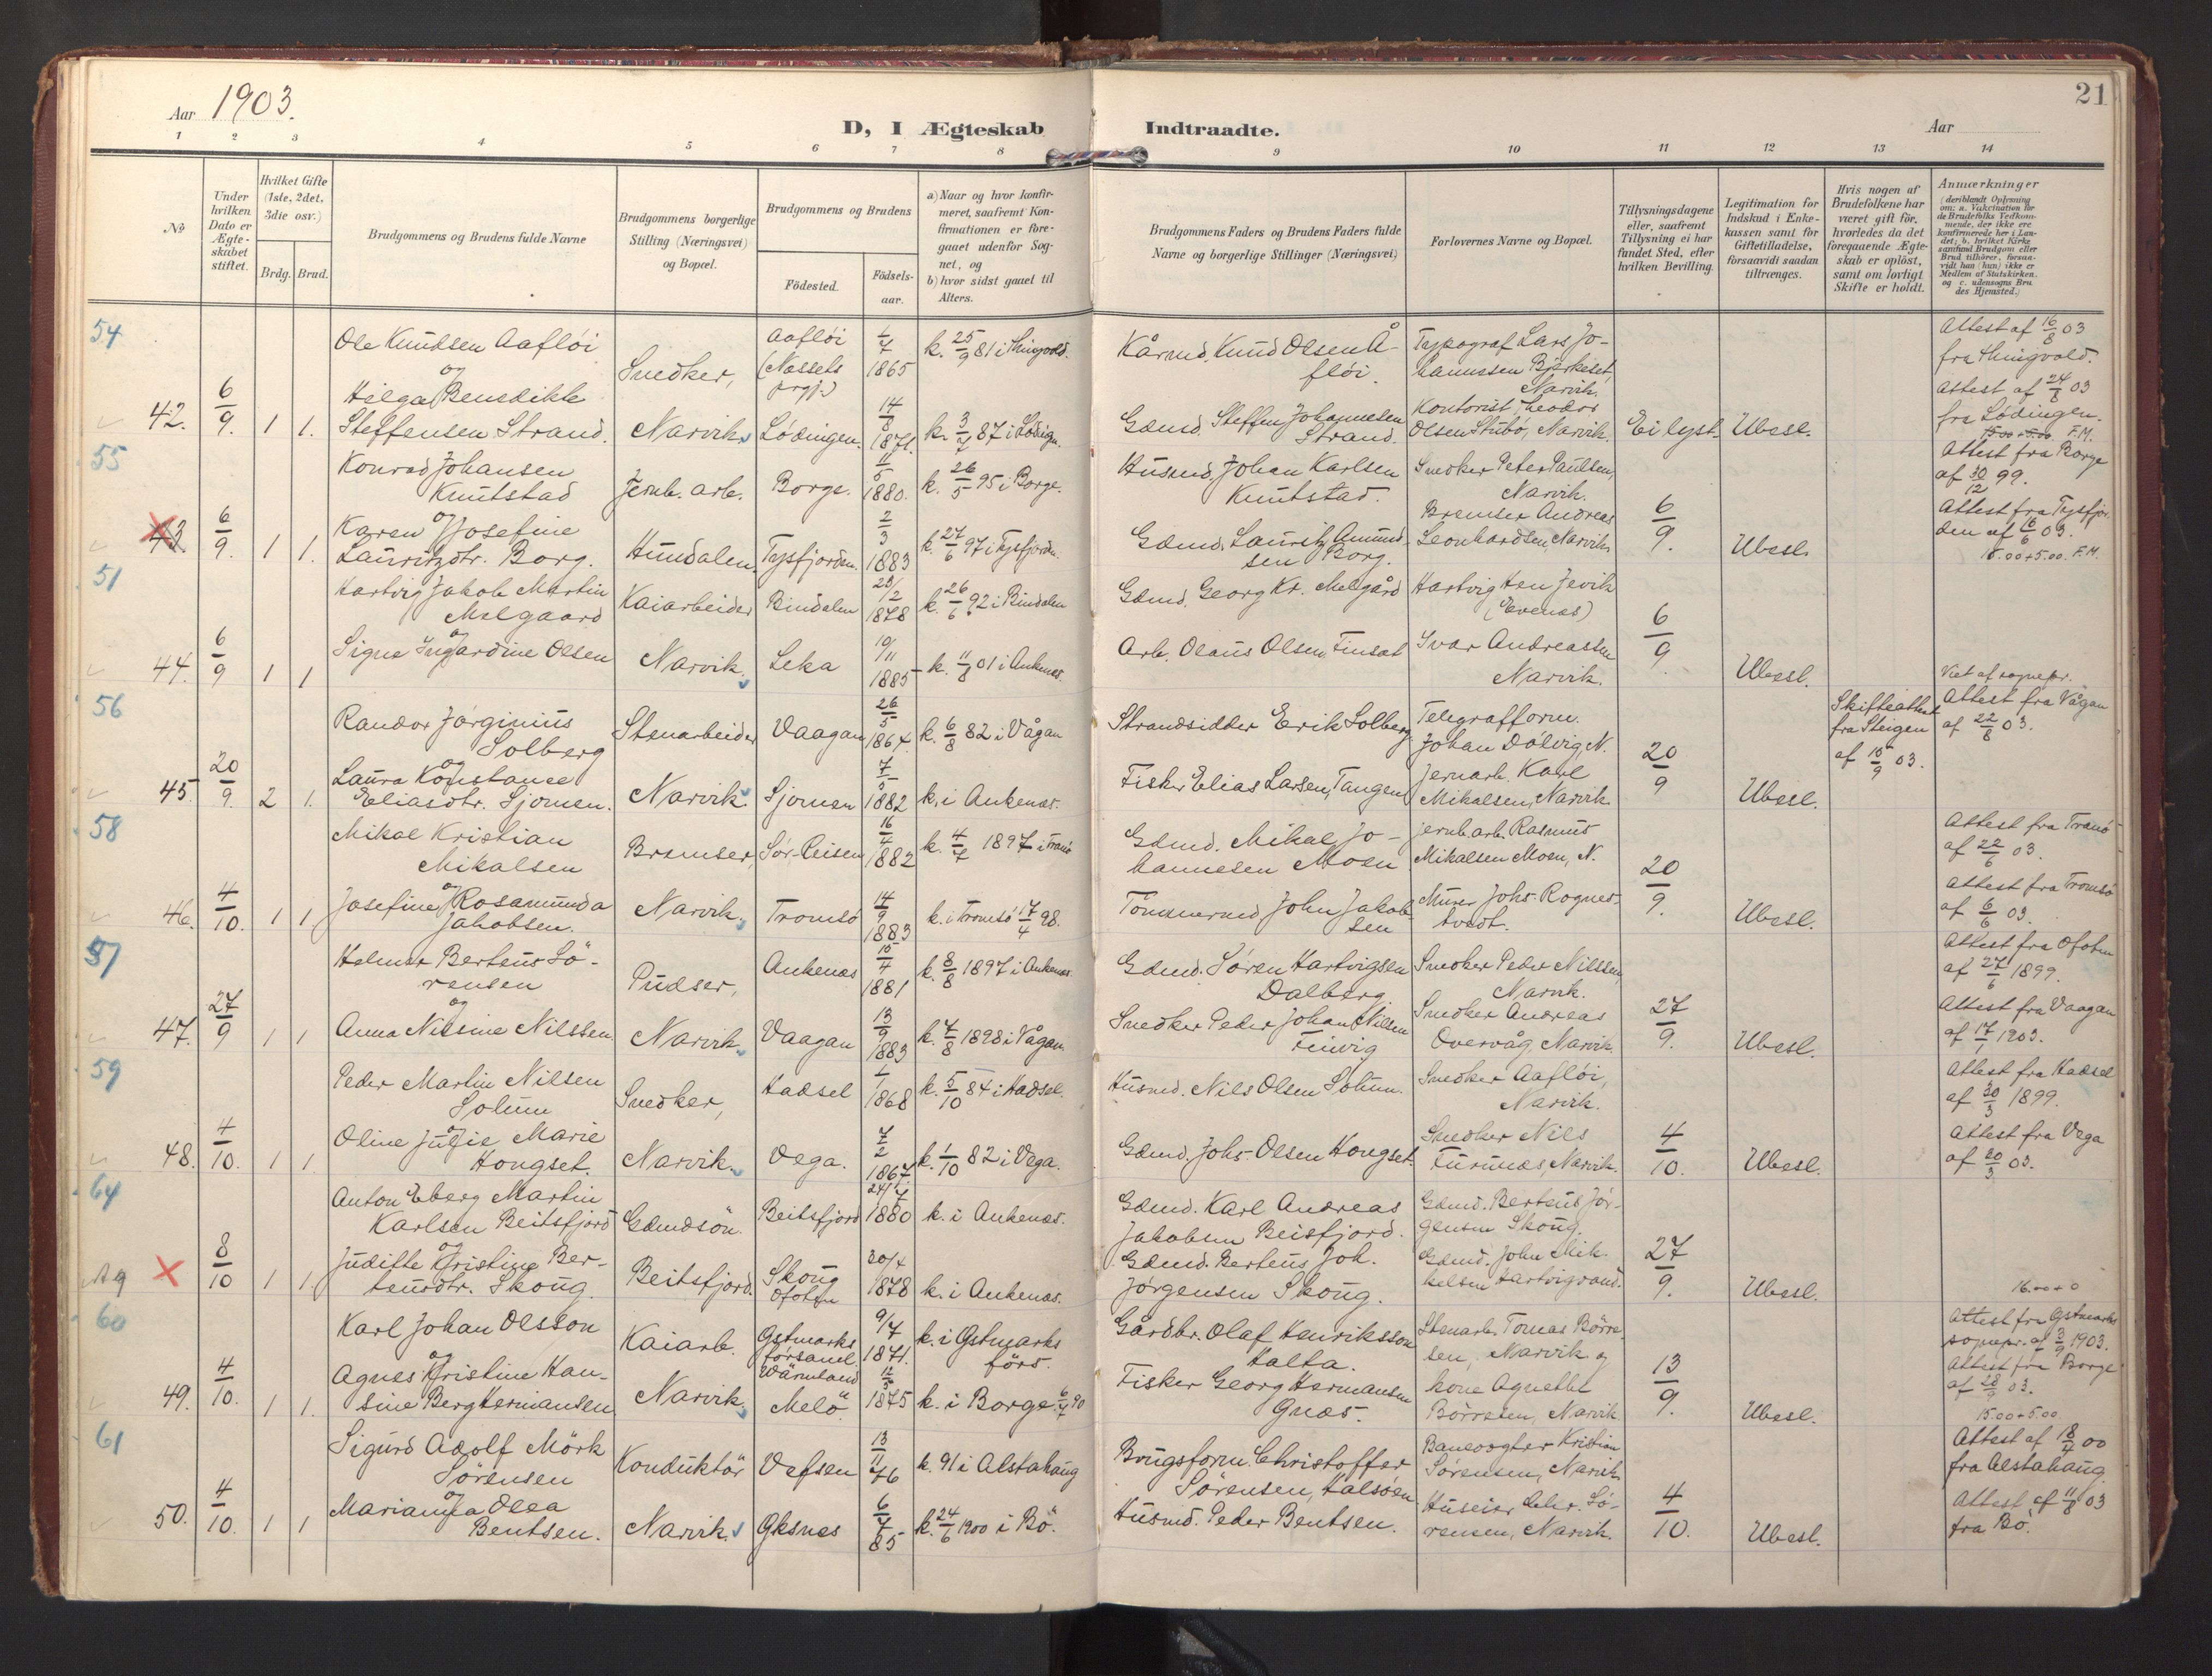 Aar 1903.
D, I Ægteskab
Indtraadte.
Aar
21
1 2 3 4 5 6 7 8 9 10 11 12 13 14
No
Under hvilken Dato er Ægteskabet stiftet.
Hvilket Gifte (1ste, 2det, 3die osv.)
Brdg. Brud.
Brudgommens og Brudens fulde Navne
Brudgommens borgerlige Stilling (Næringsvei) og Bopæl.
Brudgommens og Brudens
Födested.
Födsels-aar.
a) Naar og hvor konfirmeret, saafremt Konfirmationen er foregaaet udenfor Sognet, og
b) hvor sidst gaaet til Alters.
Brudgommens Faders og Brudens Faders fulde Navne og borgerlige Stillinger (Næringsvei)
Forlovernes Navne og Bopæl.
Tillysningsdagene eller, saafremt Tillysning ei har fundet Sted, efter hvilken Bevilling.
Legitimation for Indskud i Enkekassen samt for Giftetilladelse, forsaavidt saadan tiltrænges.
Hvis nogen af Brudefolkene har været gift før, hvorledes da det foregaaende Ægteskab er oplöst, samt om lovligt Skifte er holdt.
Anmærkninger
(deriblandt Oplysning om: a. Vakcination for de Brudefolks Vedkommende, der ikke ere konfirmerede her i Landet; b. hvilket Kirkesamfund Brudgom eller Brud tilhörer, forsaavidt han (hun) ikke er Medlem af Statskirken, og c. udensogns Brudes Hjemsted.)
54
42. 6/9. 1 1.
Ole Knudsen Aafløi
og
Helga Benedikte
Steffensen Strand.
Snedker,
Narvik
Aafløi
(Nessets
prgj.)
1/7 1865
k. 25/9 81 i Thingvold.
Lødingen. 14/8 1871.
k. 3/7 87 i Lødign.
Kårmd. Knud Olsen Å-
fløi.
Gdmd. Steffen Johannesen
Strand.
Typograf Lars Jo-
hannessen Bjerkeset,
Narvik.
Kontorist Theodor
Olsen Stubö, Narvik.
Ei lyst.
Ubesl.
Attest af 16/8 03
fra Thingvold.
Attest af 24/8 03
fra Lødingen.
15.00+5.00 F.M.
55
43 6/9. 1 1.
Konrad Johansen
Knutstad
og
Karen Josefine
Lauritzdtr. Borg.
Jernb. arb.
Hundalen.
Borge. 11/5 1880.
k. 26/5 95 i Borge.
Tysfjorden. 2/3 1883
k. 27/6 97 i Tysfjorden.
Husmd. Johan Karlsen
Knutstad.
Gdmd. Lauritz Amund-
sen Borg.
Snedker Peter Paulsen,
Narvik.
Bremser Andreas
Leonhardsen, Narvik.
6/9.
Ubesl.
Attest fra Borge
af 30/12 99.
Attest fra Tysfjor-
den af 6/6 03.
15.00+5.00. F.M.
51
44. 6/9 1 1
Hartvig Jakob Martin
Melgaard
og
Signe Ingardine Olsen
Kaiarbeider
Narvik.
Bindalen 23/2 1878
k. 26/6 92 i Bindalen
Leka 19/11 1885
k. 11/8 01 i Ankenes.
Gdmd. Georg Kr. Melgård
Arb. Olaus Olsen Finsæt
Hartvig Hen Jevik
(Evenes)
Ivar Andreassen
Narvik.
6/9
Ubesl.
Viet af sognepr.
56
45. 20/9. 2 1.
Randor Jørginius
Solberg
og
Laura Konstance
Eliasdtr. Sjomen.
Stenarbeider
Narvik.
Vaagan 26/5 1864.
k. 6/8 82 i Vågan
Sjomen 7/5 1882
k. i Ankenes.
Strandsidder Erik Solberg
Fisker Elias Larsen, Tangen
Telegrafform.
Johan Dølvig, N.
Jernarb. Karl
Mikalsen, Narvik.
20/9
Ubesl.
Skifteattest
fra Steigen
af 15/9 03.
Attest fra Vågan
af 22/8 03.
58
46. 4/10. 1 1
Mikal Kristian
Mikalsen
og
Josefine Rosamunda
Jakobsen.
Bremser,
Narvik.
Sør-Reisen 16/4 1882
k. 4/7 1897 i Tranö
Tromsø 14/9 1883
k. i Tromsö 17/4 98.
Gdmd. Mikal Jo-
hannesen Moen
Tömmermd John Jakob-
sen
jernb.arb. Rasmus
Mikalsen Moen, N.
Murer Johs. Rognes-
tvedt.
20/9.
Ubesl.
Attest fra Tranö
af 22/6 03.
Attest fra Tromsø
af 6/6 03.
57
47. 27/9 1 1
Helmer Berteus Sö-
rensen
og
Anna Nilsine Nilssen.
Pudser,
Narvik.
Ankenes 15/4 1881
k. 8/8 1897 i Ankenes.
Vaagan 13/9 1883
k. 7/8 1898 i Vågan
Gdmd. Søren Hartvigsen
Dalberg.
Snedker Peder Johan Nilsen
Snedker Peder Nilssen,
Narvik.
Snedker Andreas
Overvåg, Narvik.
27/9.
Ubesl.
Attest fra Ofoten
af 27/6 1899.
Attest fra Vaagan
af 17/1 1903.
59
48. 4/10. 1 1.
Peder Martin Nilsen
Solum
og
Oline Julie Marie
Hongset.
Snedker,
Narvik.
Hadsel 1/1 1868
k. 5/10 84 i Hadsel.
Vega. 7/2 1867.
k. 1/10 82 i Vega.
Husmd. Nils Olsen Solum.
Gdmd. Johs. Olsen Hongset.
Snedker Aafløi,
Narvik.
Snedker Nils
Furunes, Narvik.
4/10.
Ubesl.
Attest fra Hadsel
af 30/3 1899.
Attest fra Vega
af 20/3 03.
64
8/10 1 1.
Anton Eberg Martin
Karlsen Beitsfjord
og
Juditte Kristine Ber-
teusdtr. Skoug.
Gdmdsön.
Beitsfjord.
Beitsfjord 24/7 1880
k. i Ankenes.
Skoug
Ofoten 30/4 1878
k. i Ankenes.
Gdmd. Karl Andreas
Jakobsen Beisfjord.
Gdmd. Berteus Joh.
Jørgensen Skoug.
Gdmd. Berteus Jör-
gensen Skoug.
Gdmd. John Mik-
kelsen Hartvigvand.
27/9.
Ubesl.
60
49. 4/10. 1 1.
Karl Johan Olsson
og
Agnes Kristine Han-
sine Berg Hermansen
Kaiarb.
Narvik.
Gstmarks
församl.
Wärmland 9/7 1871.
k. i Gstmarks
förs.
Melö. 12/5 1875
k. i Borge. 6/7 90
Gårdbr. Olaf Henriksson
Halta.
Fisker Georg Hermansen
Gnæs.
Stenarb. Tomas Börre-
sen, Narvik og
kone Agnethe
Börresen, Narvik
13/9.
Ubesl.
Attest fra Gstmarks
sognepr. af 3/9 1903.
Attest fra Borge
af 28/9 03.
15.00+5.00
61
50. 4/10. 1 1
Sigurd Adolf Mörk
Sörensen
og
Marianna Olea
Bentsen.
Konduktör
Narvik.
Vefsen 13/11 76
k. 91 i Alstahaug
Øksnes 6/7 85
k. 24/6 1900 i Bö.
Brugsform. Christoffer
Sörensen, Halsöen
Husmd. Peder Bentsen.
Banevogter Kristian
Sørensen, Narvik.
Huseier Sö-
rensen, Narvik.
4/10.
Ubesl.
Attest af 18/4 00
fra Alstahaug.
Attest af 11/8 03
fra Bö.